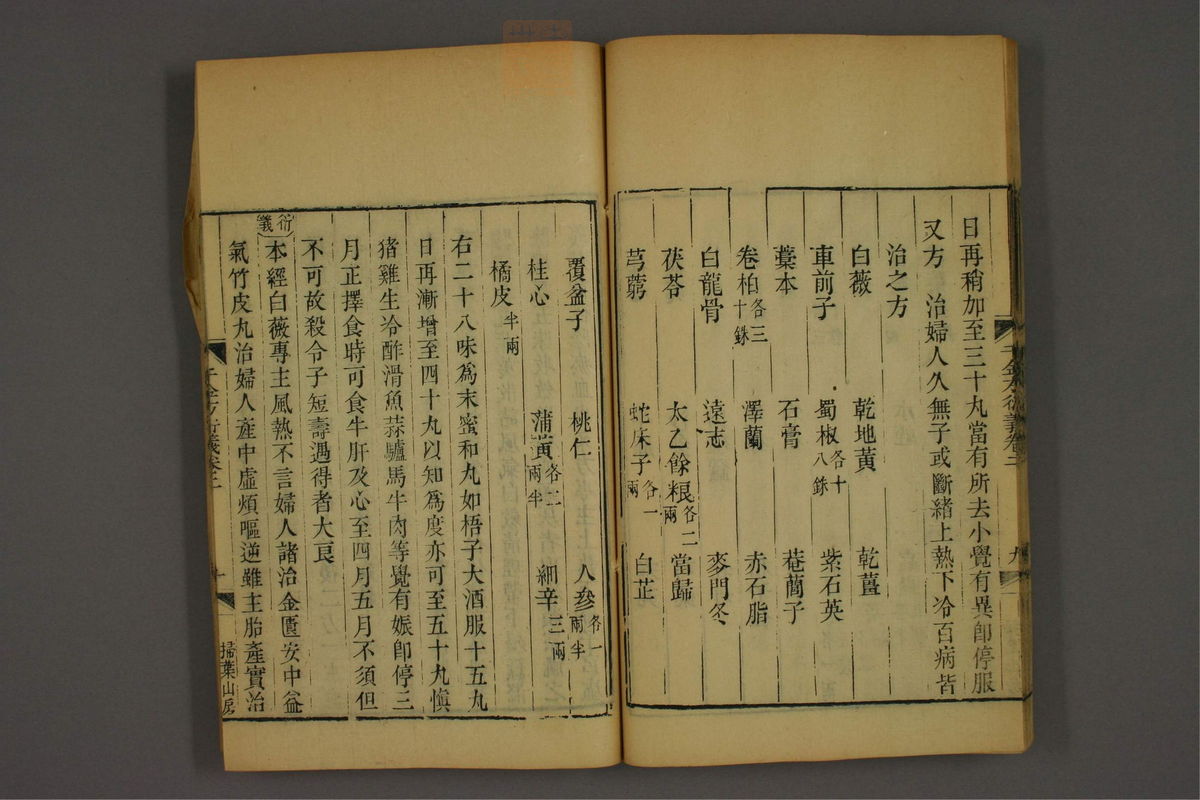 日再稍加至三十丸當有所去小覺有異即停服
又方　治婦人久無子或斷緒上熱下冷百病皆
治之方
白薇　乾地黃　乾薑
車前子　蜀椒各十八銖　紫石英
藁本　石膏　菴䕡子
卷柏各三十銖　澤蘭　赤石脂
白龍骨　遠志　麥門冬
茯苓　太乙餘粮各二兩　當歸
芎藭　蛇床子各一兩　白芷
覆盆子　桃仁　人參各一兩半
桂心　蒲黃各二兩半　細辛三兩
橘皮半兩
右二十八味爲末蜜和丸如梧子大酒服十五丸
日再漸增至四十丸以知爲度亦可至五十丸愼
猪雞生冷酢滑魚蒜驢馬牛肉等覺有娠卽停三
月正擇食時可食牛肝及心至四月五月不須但
不可故殺令子短壽遇得者大良
衍義
本經白薇專主風熱不言婦人諸治金匱安中益
氣竹皮丸治婦人產中虛煩嘔逆雖主胎產實治
千金方衍義卷二
掃葉山房